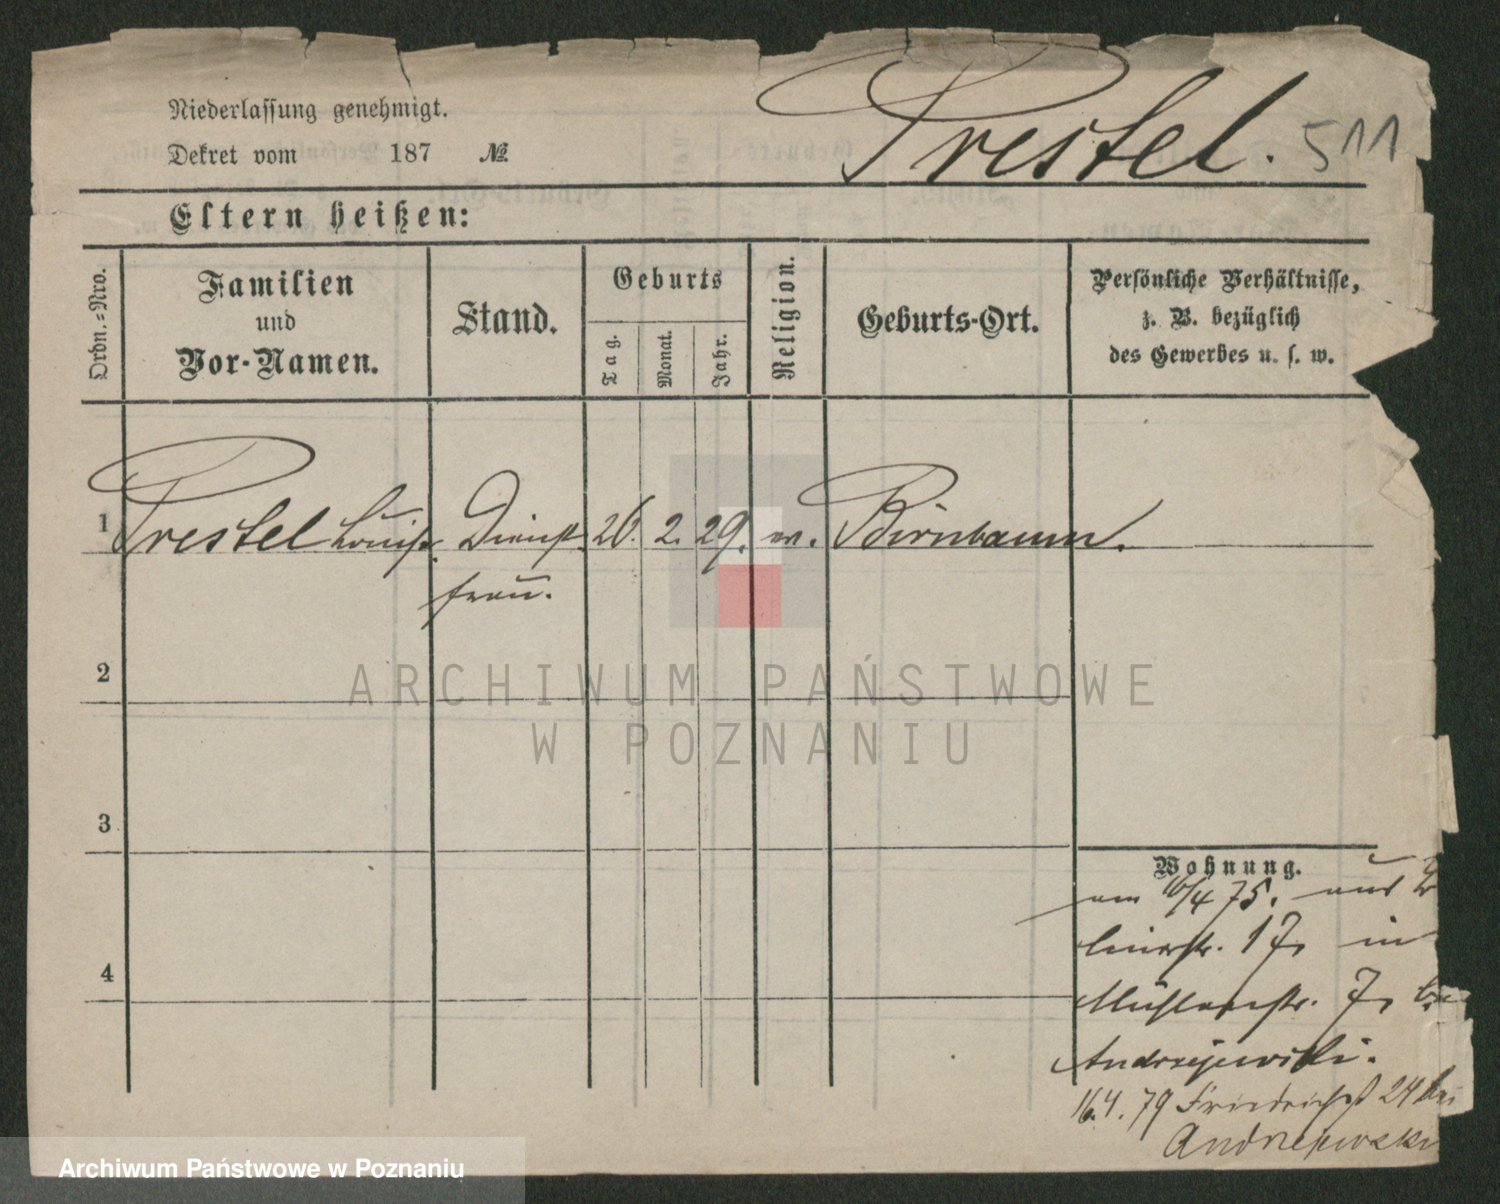 Niederlassung genehmigt.
Dekret vom 187 №
Prestel. 511
Eltern heißen:
Ordn.=Nro.
Familien
und
Vor-Namen.
Stand.
Geburts
Tag.
Monat.
Jahr.
Religion.
Geburts-Ort.
Persönliche Verhältnisse,
z. B. bezüglich
des Gewerbes u. s. w.
1 Prestel Louise Dienst 26. 2. 29. ev. Birnbaum.
frau.
2
3
4
Wohnung.
am /4 75. aus
str. 17, in
Mühlenstr. 7, bei
Andrzejewski.
16.4.79 Friedrichst 24 bei
Andrzejewski
ARCHIWUM PAŃSTWOWE
W POZNANIU
Archiwum Państwowe w Poznaniu